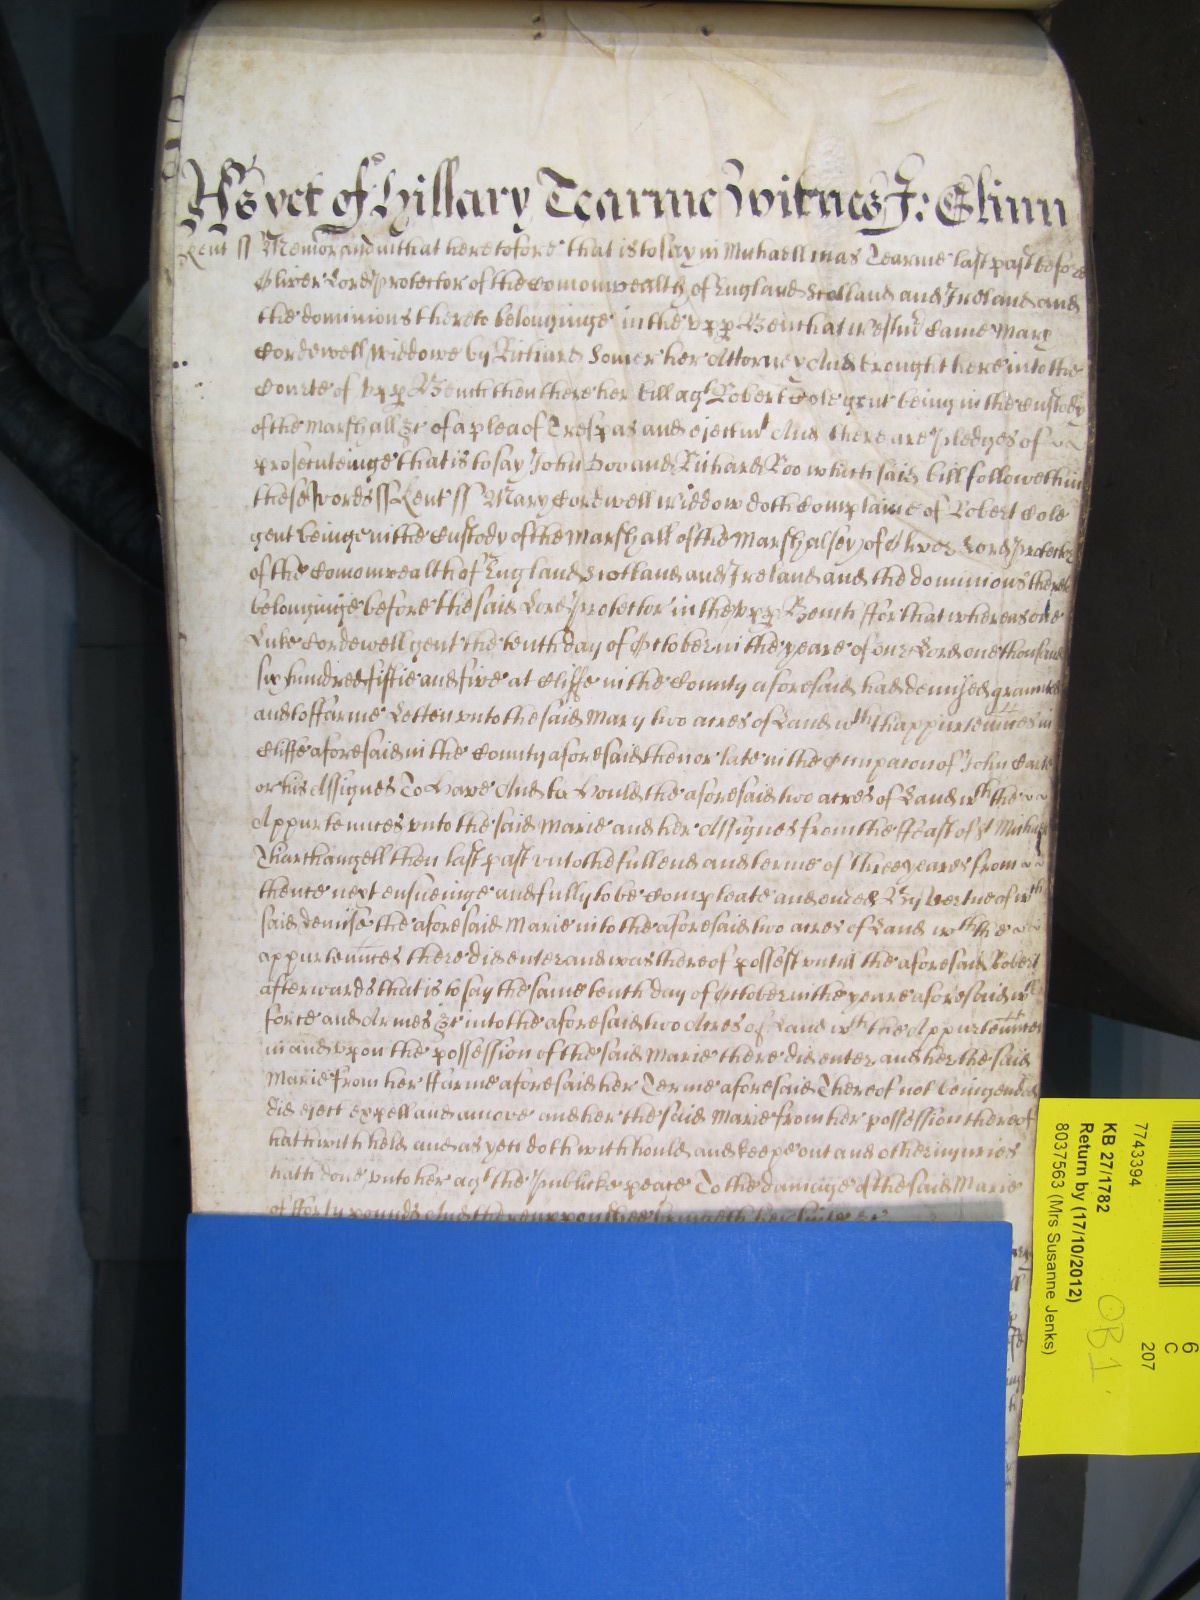 As yet of Hillary Tearme Witnes J: Glinn
Kent ss Memorandum that heretofore that is to say in Michaellmas Tearme last past before
Oliver Lord Protector of the Comonwealth of England Scotland and Ireland and
the dominions thereto belonginge in the upp Bench at Westmr Came Mary
Cordewell Widdowe by Richard Somer her Attorney And brought here into the
Courte of upp Bench then there her bill agt Robert Cole gent being in the Custody
of the Marshall &c of a plea of Trespas and ejectmt And there are pledges of
prosecuteinge that is to say John Doo and Richard Roo which said bill followeth in
these words ss Kent ss Mary Cordewell Widdow doth Complaine of Robert Cole
gent beinge in the Custody of the Marshall of the Marshalsey of Oliver Lord Protector
of the Comonwealth of England Scotland and Ireland and the dominions thereto
belonginge before the said Lord Protector in the upp Bench ffor that whereas one
Luke Cordewell gent the tenth day of October in the yeare of our Lord one thousand
six hundred fiftie and five at Cliffe in the County aforesaid had demysed graunted
and to ffarme Letten unto the said Mary two acres of Land wth thappurtennces in
Cliffe aforesaid in the County aforesaid then or late in the Occupacon of John
or his Assignes To Have And to Hould the aforesaid two acres of Land wth the
Appurtennces unto the said Marie and her Assignes from the ffeast of St Michaell
Tharchangell then last past unto the full end and terme of three yeares from
thence next ensueinge and fully to be Compleate and ended By vertue of wch
said demise the aforesaid Marie into the aforesaid two acres of Land wth the
appurtennces there did enter and was thereof possest untill the aforesaid Robert
afterwards that is to say the same tenth day of October in the yeare aforesaid wth
force and Armes &c into the aforesaid two Acres of Land wth the Appurtennces
in and upon the possession of the said Marie there did enter and her the said
Marie from her ffarme aforesaid her Terme aforesaid Thereof not being ended
did eject expell and amove and her the said Marie from her possession thereof
hath with held and as yett doth with hould and keepe out and other injuries
hath done unto her agt the publicke peace To the damage of the said Marie
of fforty pounds And thereuppon shee bringeth her suite &c
7743394
KB 27/1782
Return by (17/10/2012)
8037563 (Mrs Susanne Jenks)
6
C
207
OB1